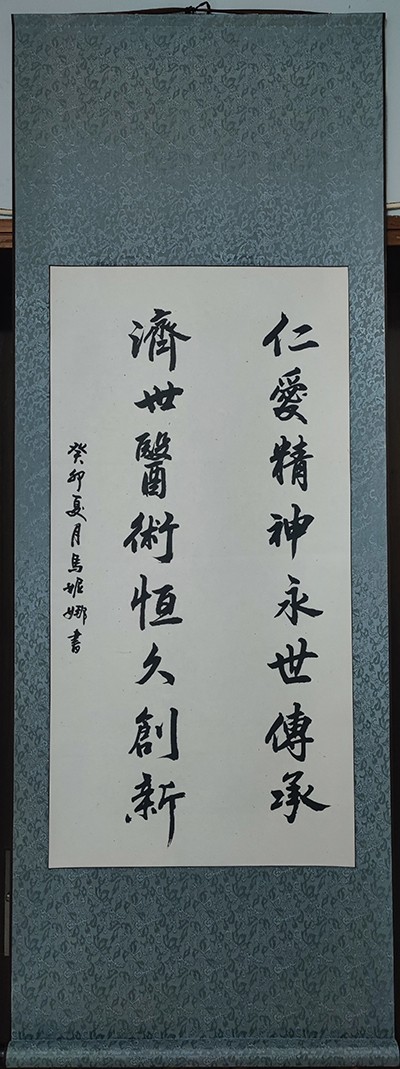 仁愛精神永世傳承
濟世醫術恒久創新
癸卯夏月馬妮娜書